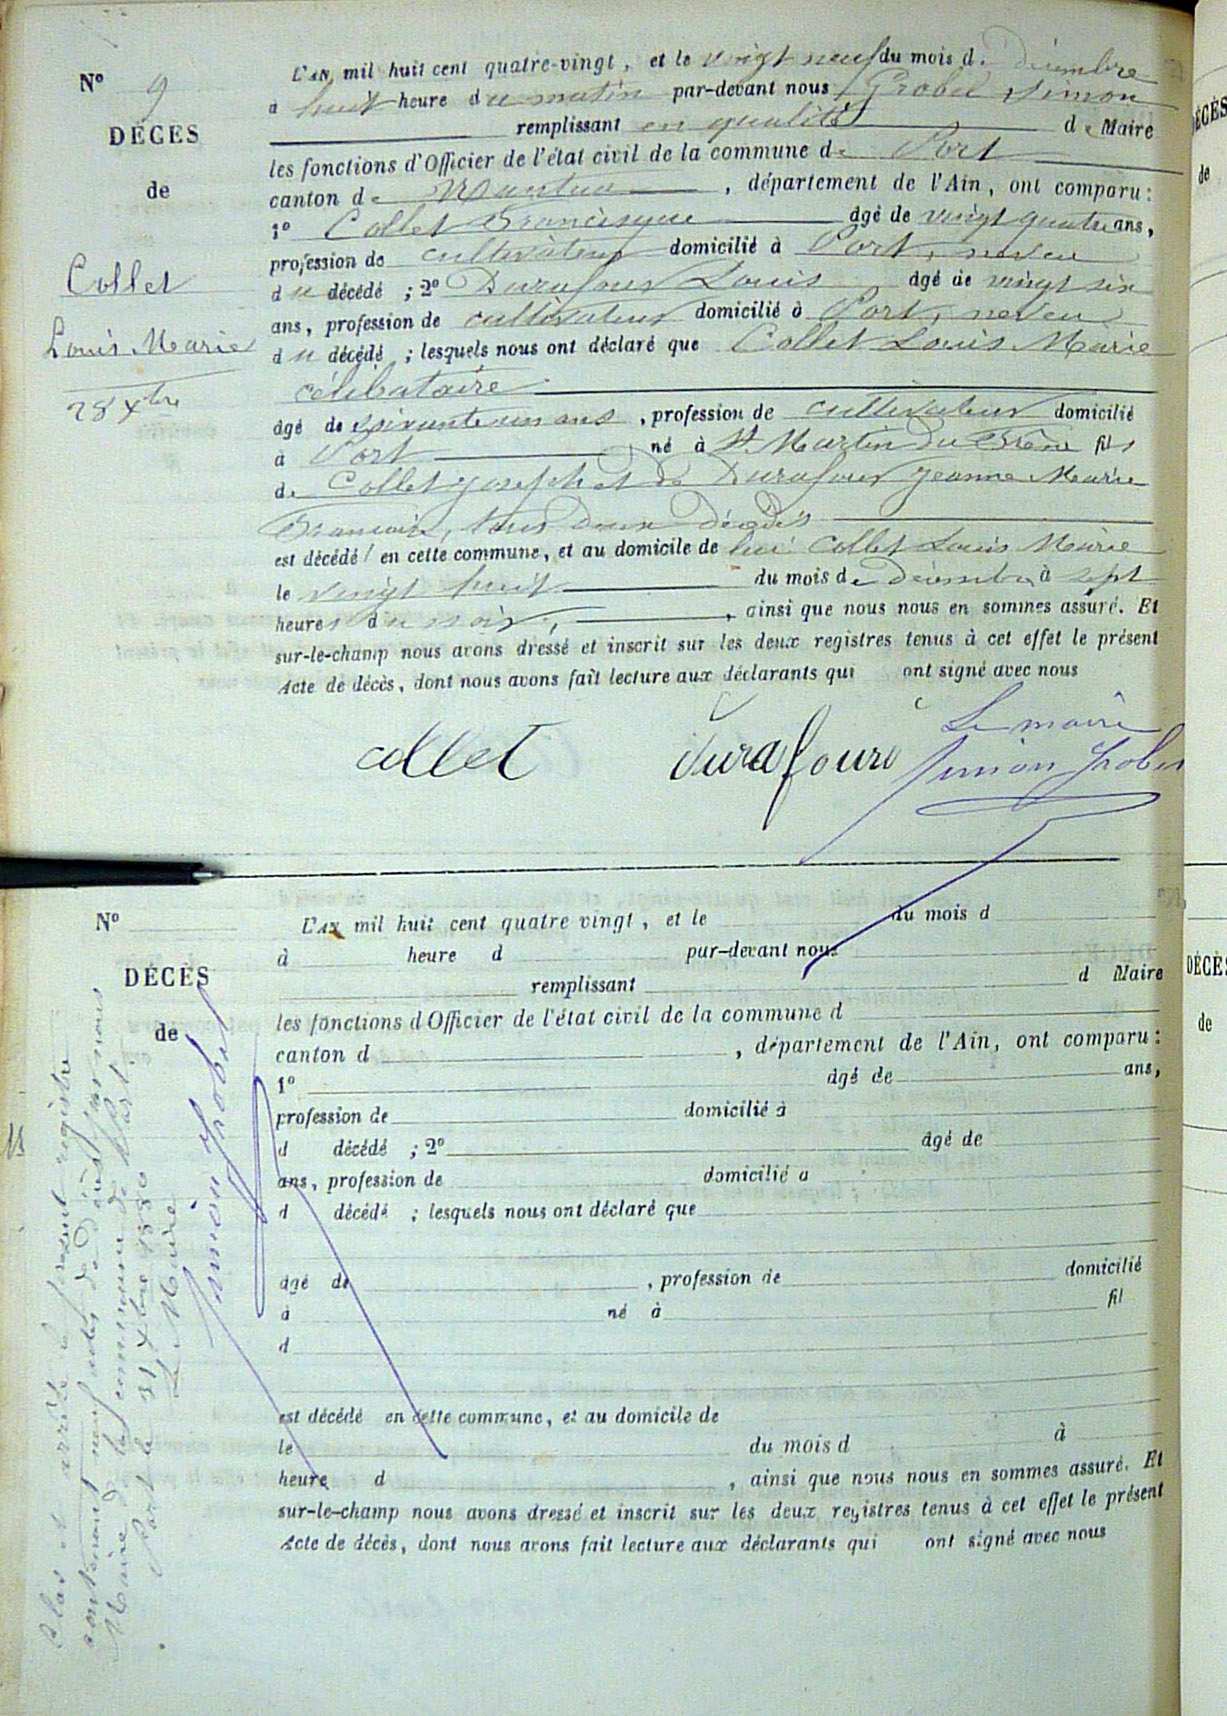 N° 9
DÉCÈS
de
Collet
Louis Marie
28 Xbre
L'AN mil huit cent quatre-vingt, et le vingt neuf du mois d. décembre
a huit heure du matin par-devant nous Grobel Simon
remplissant en qualité de Maire
les fonctions d'Officier de l'état civil de la commune de Port
canton de Nantua, département de l'Ain, ont comparu:
1° Collet Francisque âgé de vingt quatre ans,
profession de cultivateur domicilié à Port, neveu
du décédé ; 2° Durafour Louis âgé de vingt six
ans, profession de cultivateur domicilié à Port, neveu
du décédé ; lesquels nous ont déclaré que Collet Louis Marie
célibataire
âgé de soixante un ans, profession de cultivateur domicilié
à Port né à St Martin du Frêne fils
de Collet Joseph et de Durafour Jeanne Marie
Françoise, tous deux décédés
est décédé en cette commune, et au domicile de lui Collet Louis Marie
le vingt huit du mois de Décembre à sept
heures du soir, ainsi que nous nous en sommes assuré. Et
sur-le-champ nous avons dressé et inscrit sur les deux registres tenus à cet effet le présent
Acte de décès, dont nous avons fait lecture aux déclarants qui ont signé avec nous
Le maire
collet Durafour Simon Grobel
N°
DÉCÈS
de
L'AN mil huit cent quatre vingt, et le du mois d
à heure d par-devant nous
remplissant d Maire
les fonctions d'Officier de l'état civil de la commune d
canton d , département de l'Ain, ont comparu:
1° âgé de ans,
profession de domicilié à
d décédé ; 2° âgé de
ans, profession de domicilié a
d décédé ; lesquels nous ont déclaré que
âgé de , profession de domicilié
à né à fil
d
est décédé en cette commune, et au domicile de
le du mois d à
heure d , ainsi que nous nous en sommes assuré. Et
sur-le-champ nous avons dressé et inscrit sur les deux registres tenus à cet effet le présent
Acte de décès, dont nous avons fait lecture aux déclarants qui ont signé avec nous
Clos et arrêté le présent registre
contenant neuf actes de décès par nous
Maire de la commune de Port.
Port le 31 Xbre 1880
Le Maire
Simon Grobel
DÉCÈS
de
DÉCÈS
de